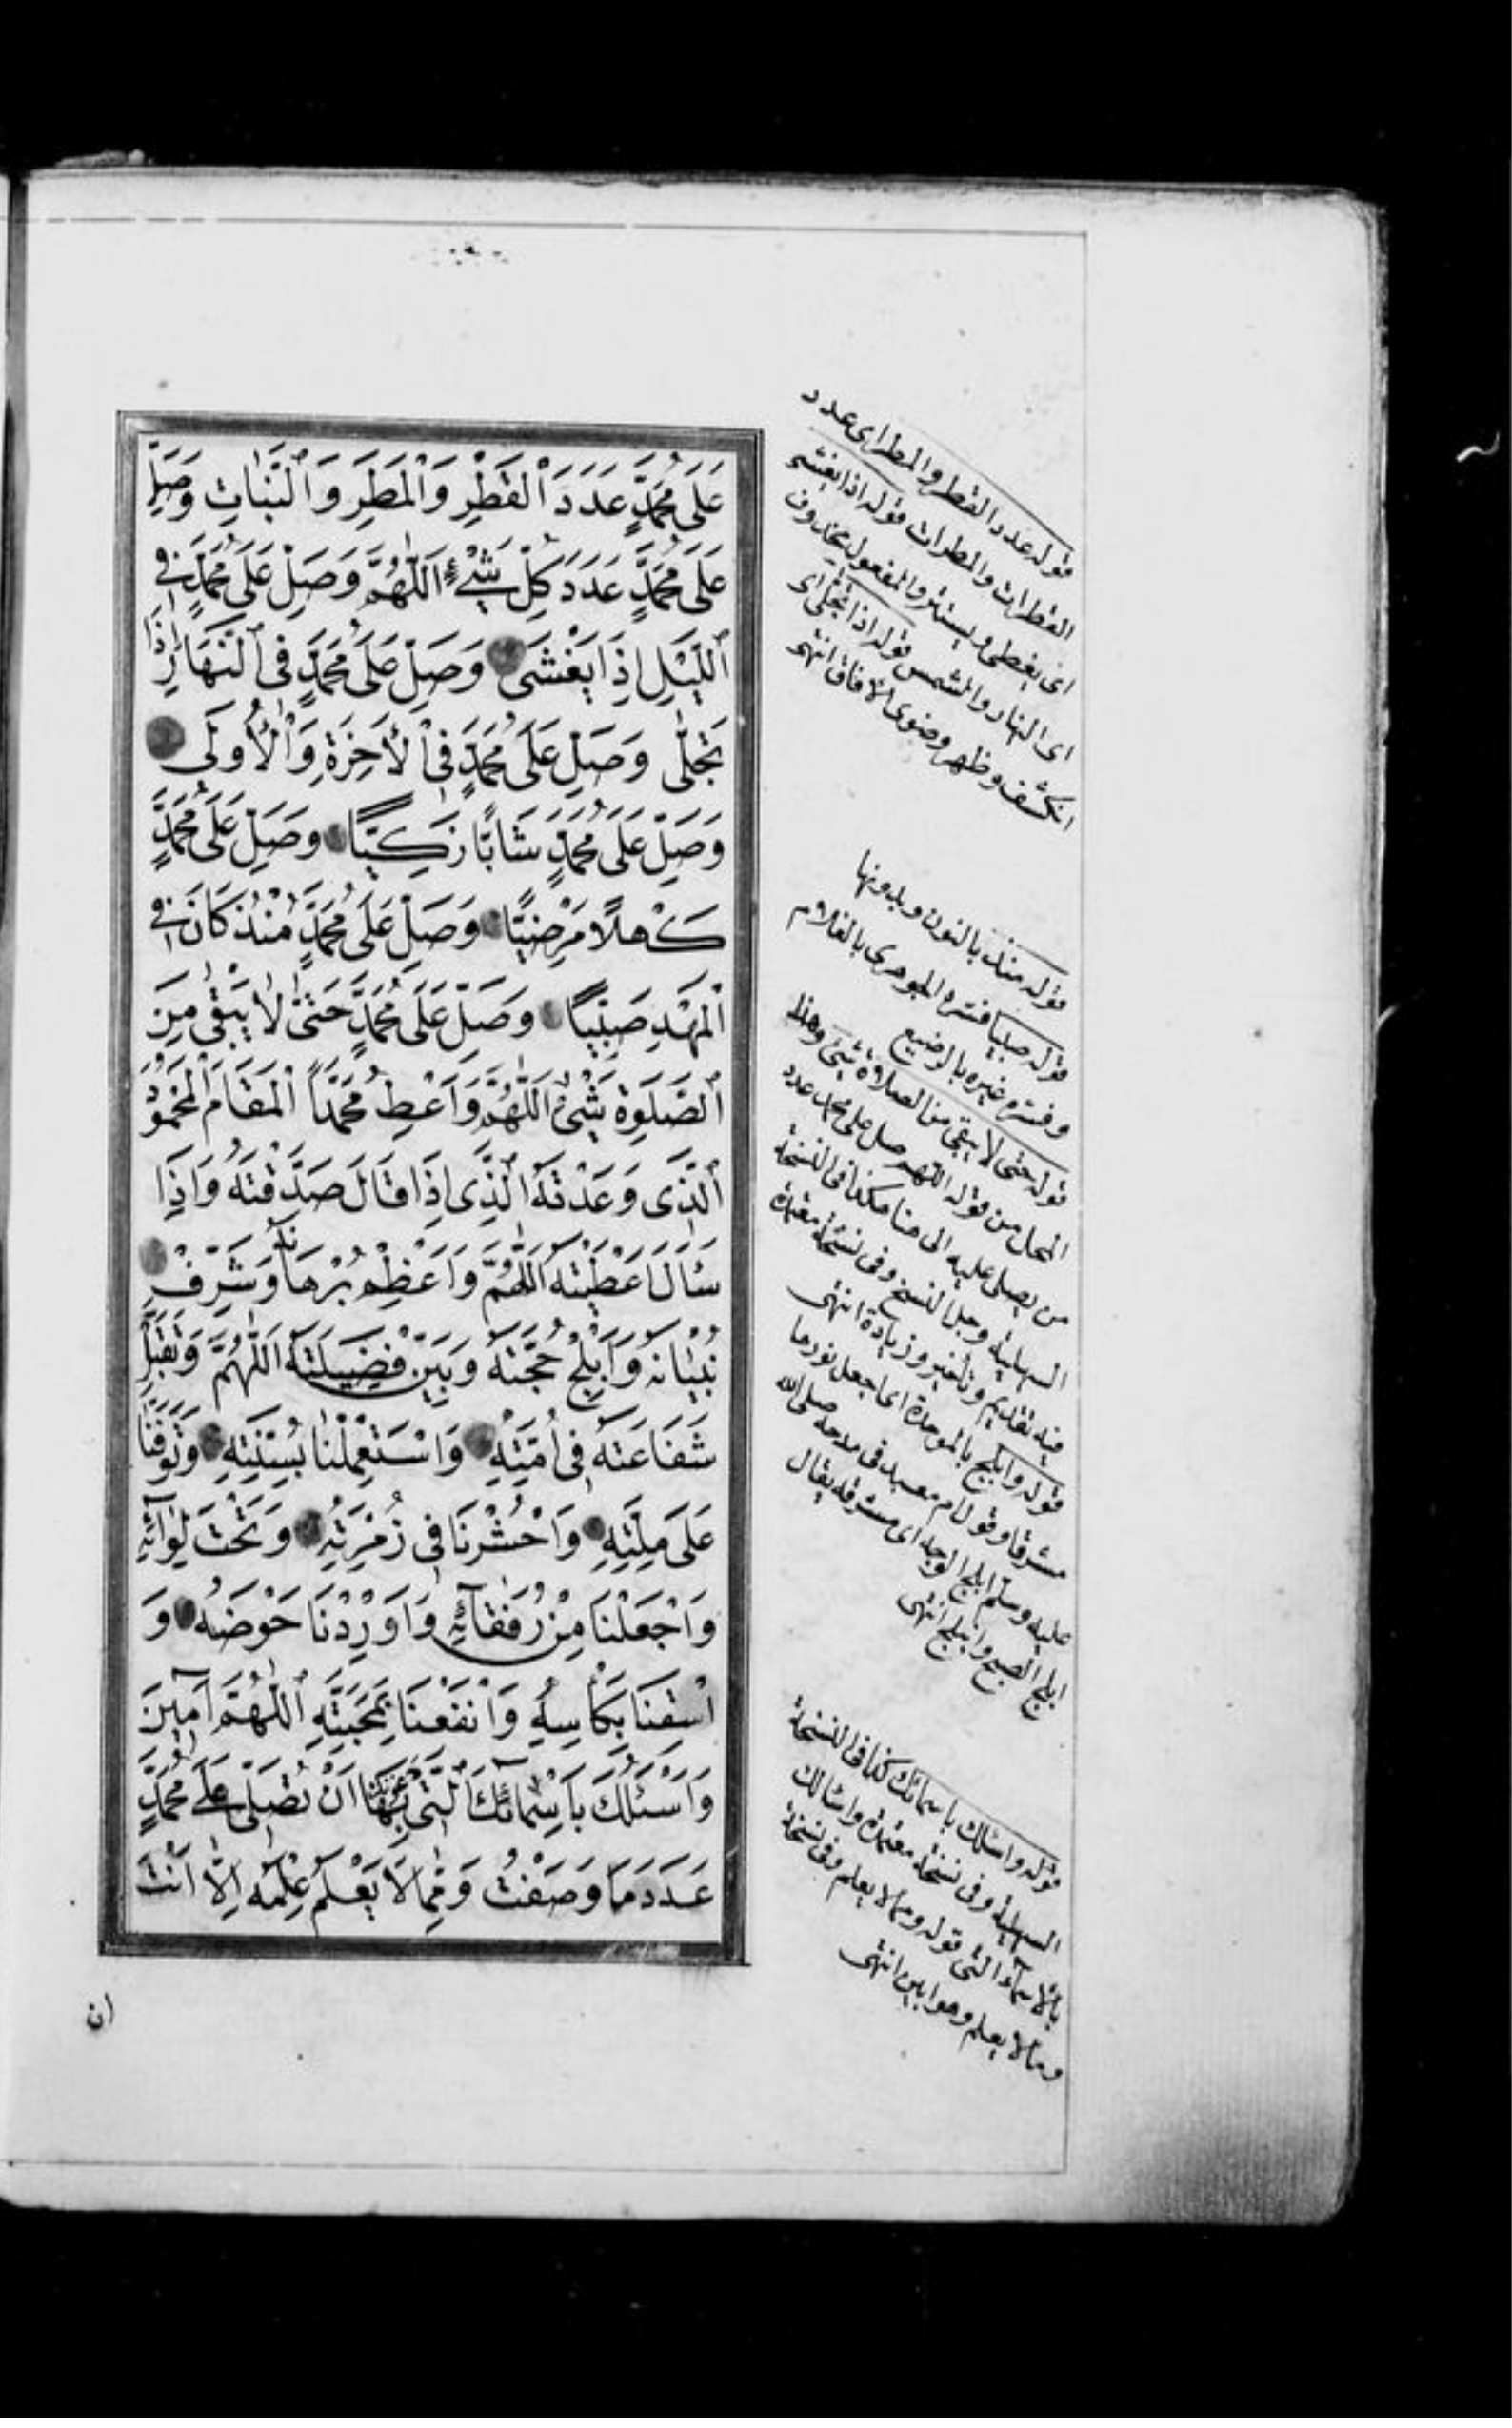 عَلَى مُحَمَّدٍ عَدَدَ ٱلْقَطْرِ وَٱلْمَطَرِ وَٱلنَّبَاتِ وَصَلِّ
عَلَى مُحَمَّدٍ عَدَدَ كُلِّ شَيْءٍ اَللّٰهُمَّ وَصَلِّ عَلَى مُحَمَّدٍ فِى
ٱللَّيْلِ اِذَا يَغْشَى وَصَلِّ عَلَى مُحَمَّدٍ فِى ٱلنَّهَارِ اِذَا
تَجَلّٰى وَصَلِّ عَلَى مُحَمَّدٍ فِى ٱلْأَخِرَةِ وَٱلْأُولَى
وَصَلِّ عَلَى مُحَمَّدٍ شَابًّا زَكِيًّا وَصَلِّ عَلَى مُحَمَّدٍ
كَهْلًا مَرْضِيًّا وَصَلِّ عَلَى مُحَمَّدٍ مُنْذُ كَانَ فِى
ٱلْمَهْدِ صَبِيًّا وَصَلِّ عَلَى مُحَمَّدٍ حَتّٰى لَا يَبْقٰى مِنَ
ٱلصَّلَوةِ شَىْءٌ اَللّٰهُمَّ وَاَعْطِ مُحَمَّدًا ٱلْمَقَامَ ٱلْمَحْمُودَ
ٱلَّذِى وَعَدْتَهُ ٱلَّذِى اِذَا قَالَ صَدَّقْتَهُ وَاِذَا
سَئَالَ اَعْطَيْتَهُ اَللّٰهُمَّ وَاَعْظِمْ بُرْهَانَهُ وَشَرِّفْ
بُنْيَانَهُ وَاَبْلِجْ حُجَّتَهُ وَبَيِّنْ فَضِيلَتَهُ اَللّٰهُمَّ وَتَقَبَّلْ
شَفَاعَتَهُ فِى اُمَّتِهِ وَاسْتَعْمِلْنَا بِسُنَّتِهِ وَتَوَفَّنَا
عَلَى مِلَّتِهِ وَاحْشُرْنَا فِى زُمْرَتِهِ وَتَحْتَ لِوَآئِهِ
وَاجْعَلْنَا مِنْ رُفَقَآئِهِ وَاَوْرِدْنَا حَوْضَهُ وَ
اسْقِنَا بِكَأْسِهِ وَانْفَعْنَا بِمَحَبَّتِهِ اَللّٰهُمَّ آمِينَ
وَاَسْئَلُكَ بِاَسْمَآئِكَ ٱلَّتِى اَنْ تُصَلِّىَ عَلَى مُحَمَّدٍ
عَدَدَ مَا وَصَفْتُ وَمِمَّا لَا يَعْلَمُ عِلْمَهُ اِلَّا اَنْتَ
ان
قوله عدد القطر والمطر اى عدد
القطرات والمطرات قوله اذا يغشى
اى يغطى ويستتر والمفعول محذوف
اى النهار والشمس قوله اذا تجلى اى
انكشف وظهر وضوى الافاق انتهى
قوله منذ بالنون وبدونها
قوله صبيا فسره الجوهرى بالغلام
وفسره غيره بالرضيع
قوله حتى لا يبقى من الصلاة شئ وهذا
المحل من قوله اللهم صل على محمد عدد
من يصلى عليه الى هنا هكذا فى النسخة
السهلية وجل النسخ وفى نسخة معتمدة
فيه تقديم وتأخير وزيادة انتهى
قوله وابلج بالموحدة اى اجعل نورها
مشرقا وقول ام معبد فى مدحه صلى الله
عليه وسلم ابلج الوجه اى مشرقه يقال
ابلج الصبح وانبلج انتهى
قوله واسئلك باسمائك كذا فى النسخة
السهلية وفى نسخة معتمدة واسالك
بالاسمآء التى قوله ومما لا يعلم وفى نسخة
وما لا يعلم وهو ابين انتهى